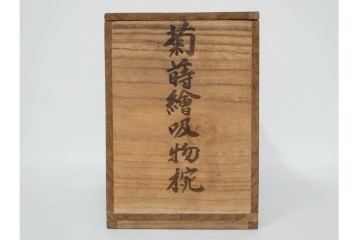 菊蒔繪吸物椀